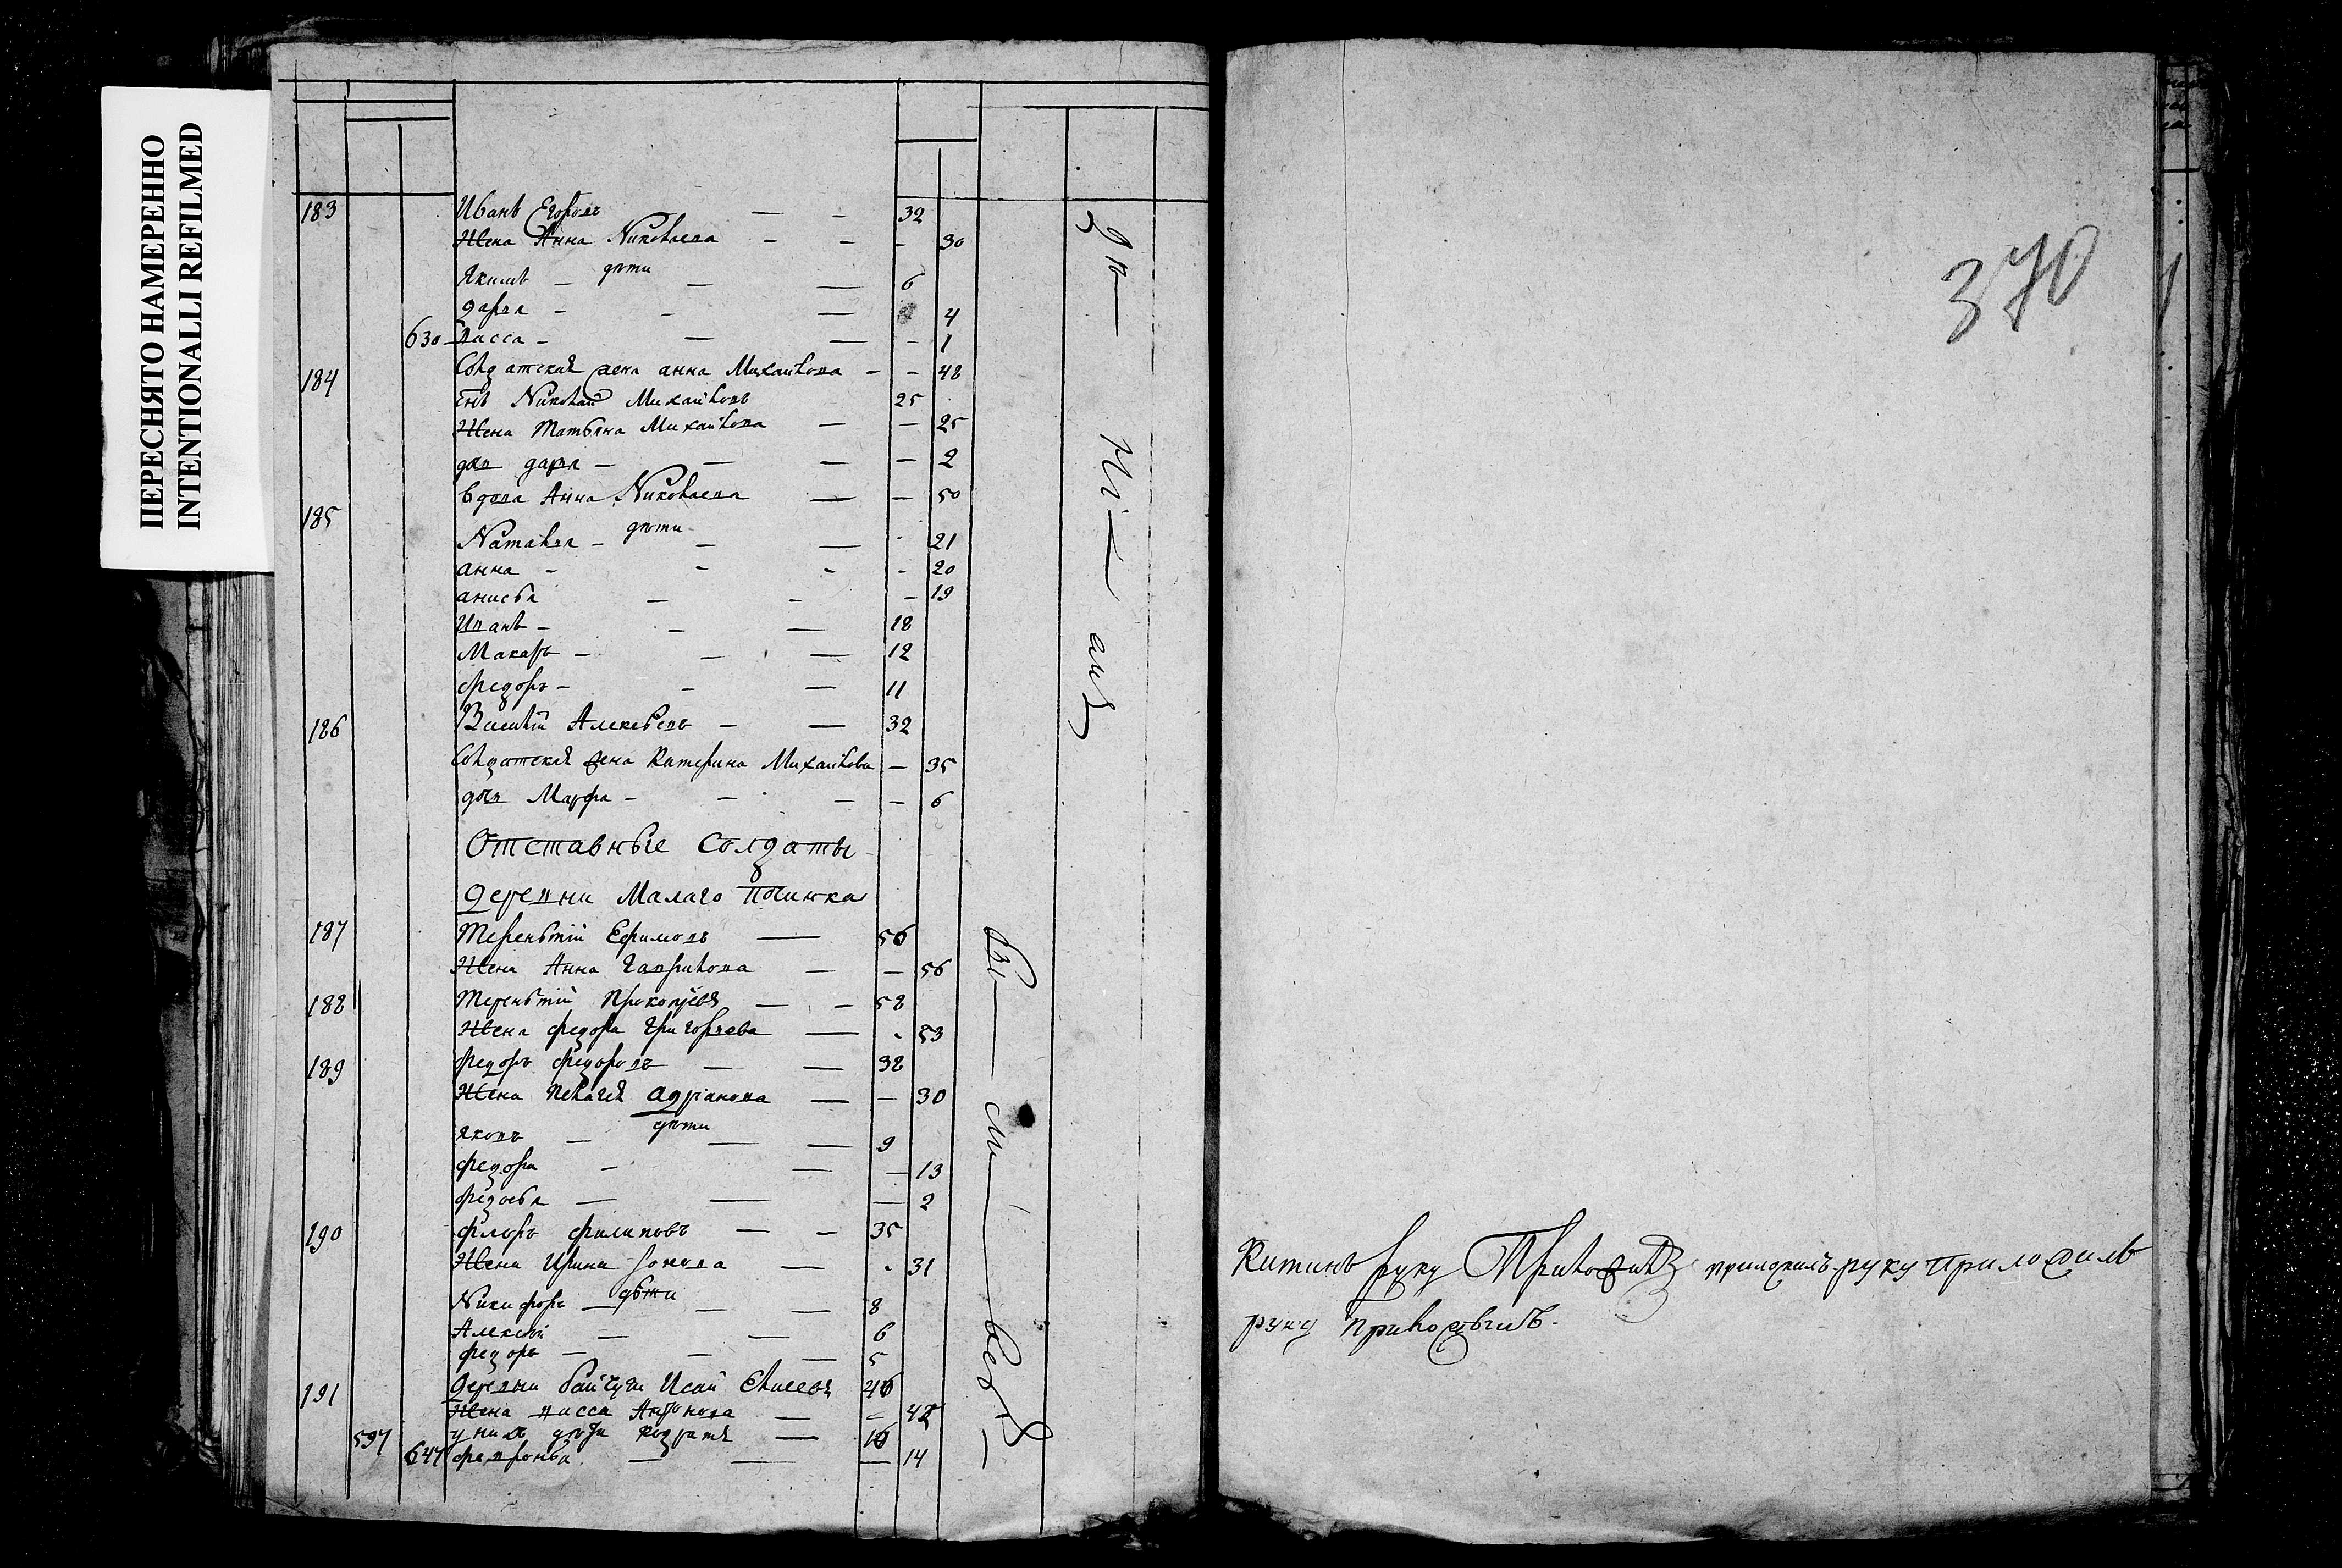 ПЕРЕСНЯТО НАМЕРЕННО
INTENTIONALLI REFILMED
183 Иванъ Егоровъ — - 32
Жена Анна Николаева - - - 30
дѣти
Якимъ - — — 6
дарья - - — 4
630 Васса - — — - 1
184 Солдатская жена анна Михайлова - - 48
снъ Николай Михайловъ 25
Жена Татьяна Михайлова — — 25
дочь дарья — — — — 2
185 вдова Анна Николаева — — 50
дѣти
Наталья - — — 21
анна - - - - 20
анисья — - — 19
Иванъ - — — 18
Макаръ - — — 12
федоръ - - — 11
186 Василій Алексѣевъ - — 32
Солдатская жена Катерина Михайлова — 35
дочь Марфа - - — - 6
Отставные Солдаты
деревни Малаго Починка
187 Терентий Ефимовъ — 56
Жена Анна Гаврилова — — 56
188 Терентий Прокопьевъ — — 58
Жена федора Григорьева — - 53
189 федоръ федоровъ — — 38
Жена Пелагея Адрианова — — 30
дѣти
Яковъ — — — 9
федора - — — 13
федосья — — — 2
190 флоръ филиповъ — - 35
Жена Ирина — - 31
дѣти
Никифоръ — — — 8
Алексей — — 6
федоръ — — — 5
191 деревни Исай Елисеевъ
Жена васса — — 42
597 у них —
647 февронья — — — 14
370
руку приложилъ руку приложилъ
руку приложилъ